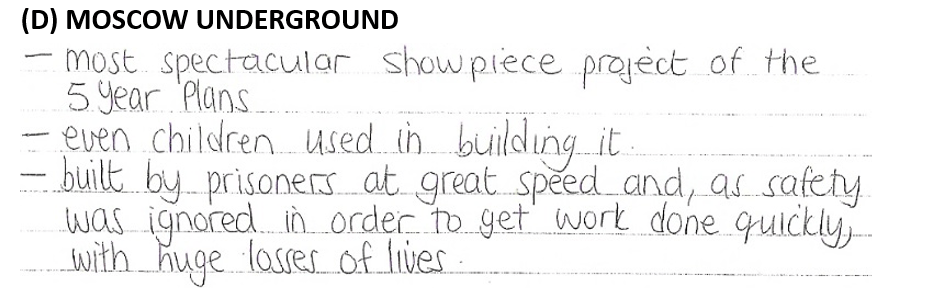 (D) MOSCOW UNDERGROUND
– most spectacular showpiece project of the
5 Year Plans
– even children used in building it.
– built by prisoners at great speed and, as safety
was ignored in order to get work done quickly,
with huge losses of lives.